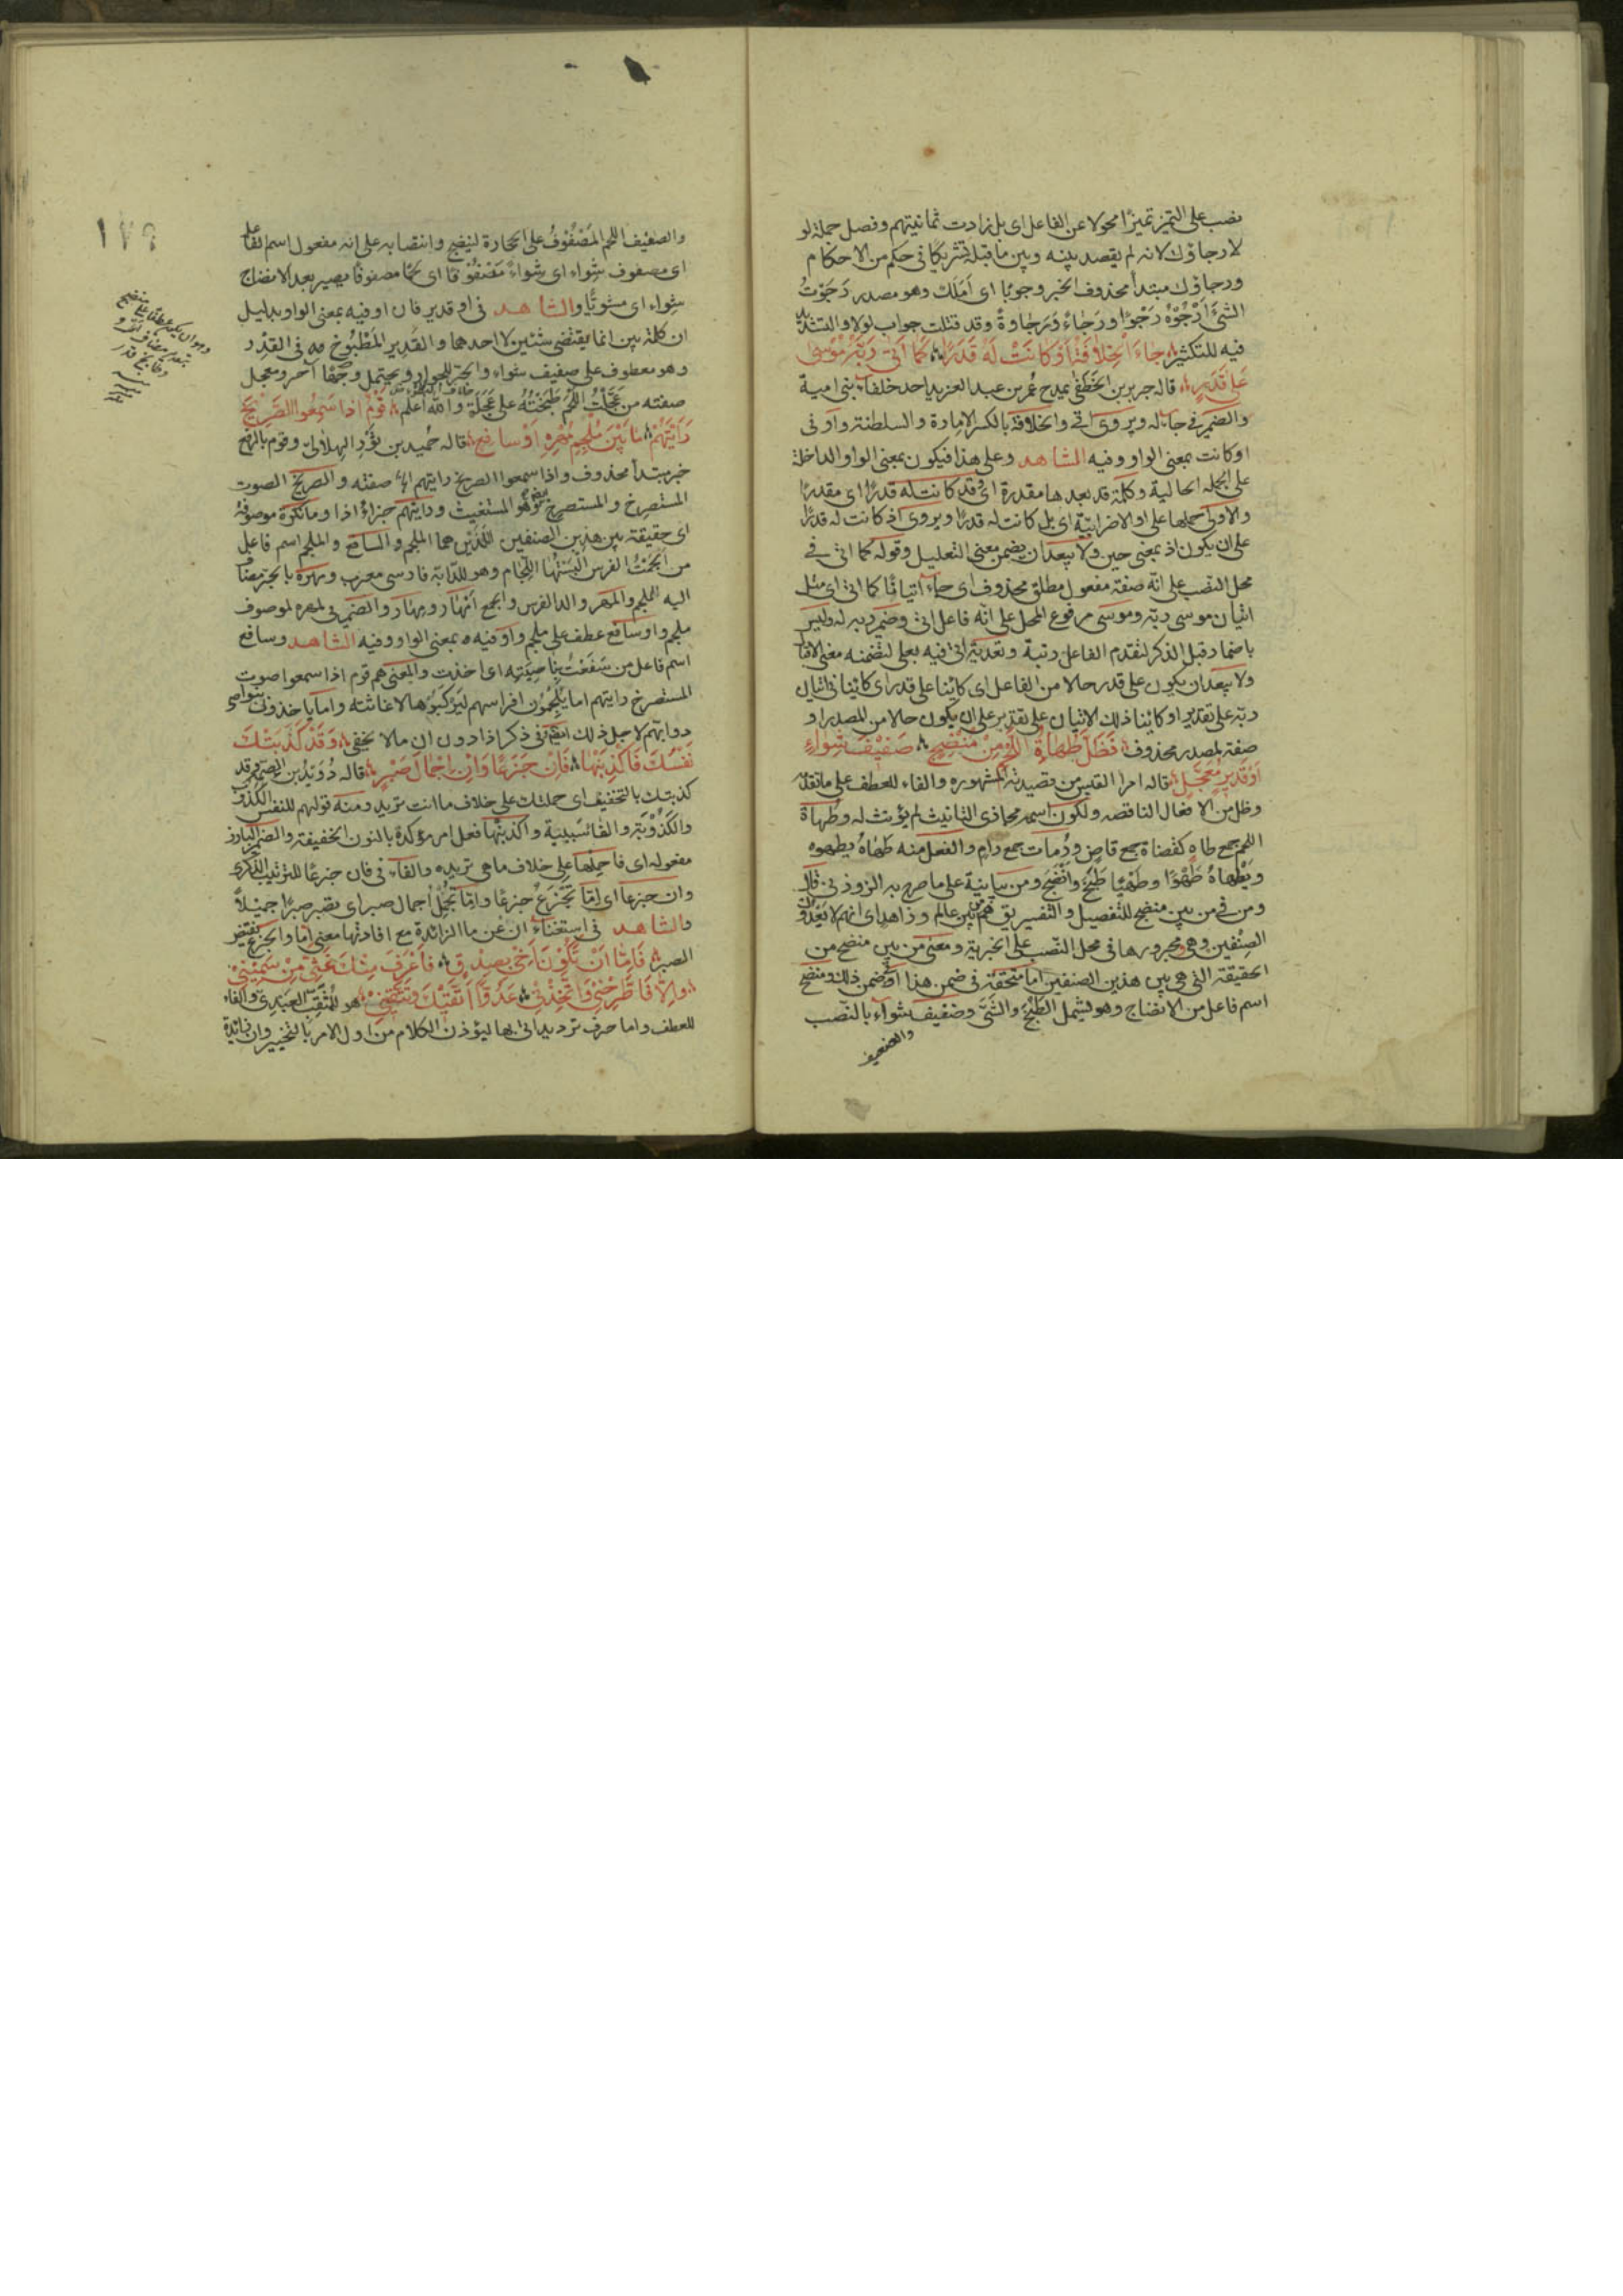 نصب على التميز تميزًا محولا عن الفاعل اى بل زادت ثمانيتهم وفصل جملة لو
لا رجاؤك لانه لم يقصد بينه وبين ما قبله تشريكا فى حكم من الاحكام
ورجاؤك مبتدأ محذوف الخبر وجوبًا اى اَمَلَك وهو مصدر رَجَوْتُ
الشئَ اَرْجُوْهُ رَجْوًا ورَجاءً ورَجاوةً وقد قتلت جواب لولا والتشديد
فيه للتكثير جاءَ الْخِلافَةَ اَوْ كانَتْ لَهُ قَدَرًا كَما اَتى رَبَّهُ مُوْسى
عَلى قَدَرٍ قاله جرير بن الخَطَفى يمدح عُمر بن عبد العزيز احد خلفاء بنى امية
والضمير فى جاء له ويروى اتى والخلافة بالكسر الامارة والسلطنة واو فى
او كانت بمعنى الواو وفيه الشاهد وعلى هذا فيكون بمعنى الواو الداخلة
على الجملة الحالية وكلمة قد بعدها مقدرة اى وقد كانت له قدرًا اى مقدرًا
والاولى حملها على او الاضرابيّة اى بل كانت له قدرًا ويروى اذ كانت له قدرًا
على ان يكون اذ بمعنى حين ولا يبعد ان يضمن معنى التعليل وقوله كما اتى فى
محل النصب على انّه صفة مفعول مطلق محذوف اى جاء اتيانًا كما اتى اى مثل
اتيان موسى ربّه وموسى مرفوع المحل على انّه فاعل اتى وضمير ربه له وليس
باضمار قبل الذكر لتقدم الفاعل رتبة وتعديّة اتى فيه بعلى لتضمنه معنى الاقبال
ولا يبعد ان يكون على قدر حالا من الفاعل اى كائنا على قدر اى كائنا فى اتيان
ربّه على تقدير او كائنا ذلك الاتيان على تقدير على ان يكون حالا من المصدر او
صفة لمصدر محذوف فَظَلَّ طُهاةُ اللَّحْمِ مِنْ بَيْنِ مُنْضِجٍ صَفِيْفَ شِواءٍ
اَوْ قَدِيْرٍ مُعَجَّلٍ قاله امرا القيس من قصيدته المشهوره والفاء للعطف على ما تقدّم
وظل من الافعال الناقصه ولكون اسمه مجازى التانيث لم يؤنث له وطُهاة
اللحم جمع طاهٍ كقضاة جمع قاض ورُمات جمع رامٍ والفعل منه طَهاهُ يطهوه
ويَطْهاهُ طَهْوًا وطَهْيًا طَبَخَ واَنْضَجَ ومن بيانية على ما صرح به الزوزنى قال
ومن فى من بين منضج للتفصيل والتفسير يق هم من بين عالم وزاهد اى انهم لا يَعْدُون
الصِنْفين وهى ومجرورها فى محل النّصب على الخبرية ومعنى من بين منضج من
الحقيقة التى هى بين هذين الصنفين اما متحققة فى ضمن هذا او ضمن ذلك ومنضج
اسم فاعل من الانضاج وهو يشمل الطَبْخَ والشَىَّ وصفيف شواء بالنّصب
والصفيف
١٧٩
والصفيف اللحم المَصْفُوْفُ على الحجارة لينضج وانتصابه على انه مفعول اسم الفاعل
اى مصفوف شِواء اى شواءً مَصْفُوْفًا اى لحمًا مصفوفًا يصير بعد الانضاج
شِواء اى مشويًّا والشاهد فى او قدير فان او فيه بمعنى الواو بدليل
ان كلمة بين انما يقتضى شيئين لا احدهما والقَدِير المَطْبُوْخ فى القِدْر
وهو معطوف على صفيف شواء والجرّ للجوار ويحتمل وجهًا آخر ومعجل
صفته من عَجَّلْتُ اللَّحْمَ طَبَخْتُهُ على عَجَلَةٍ والله اَعلم قَوْمٌ اذا سَمِعُوا الصَّرِيْخَ
رَاَيْتَهُمْ مَا بَيْنَ مُلْجِمِ مُهْرِهِ اَوْ سافِعٍ قاله حُميد بن ثَوْر الهلالى وقوم بالرفع
خبر مبتدأ محذوف واذا سمعوا الصريخ رايتهم الخ صفته والصريخ الصوت
المستصرخ والمستصرخ هو المستغيث ورايتهم جزاء اذا وما نكرة موصوفة
اى حقيقة بين هذين الصنفين اللّذين هما الملجم والسافع والملجم اسم فاعل
من اَلْجَمْتُ الفرس اَلْبَسْتُها اللّجام وهو للدّابة فارسى معرب ومهره بالجرّ مضاف
اليه الملجم والمهر ولد الفرس والجمع اَمْهار ومِهار والضمير فى لمهره لموصوف
ملجم واو سافع عطف على ملجم واو فيه بمعنى الواو وفيه الشاهد وسافع
اسم فاعل من سَفَعْتُ بِناصِيَتِه اى اخذت والمعنى هم قوم اذا سمعوا صوت
المستصرخ رايتهم اما يُلْجِمُوْن افراسهم لِيَرْكَبُوْها لاغاثته واما ياخذون بنواصى
دوابهم لاجل ذلك فى ذكر اذا دون ان ما لا يخفى وَقَدْ كَذَبَتْكَ
نَفْسُكَ فَاكْذِبَنْها فَاِنْ جَزَعًا وَاِنْ اِجْمالَ صَبْرٍ قاله دُرَيْدُ بن الصمّه وقد
كذبتك بالتخفيف اى حملتك على خلاف ما انت تريد ومنه قولهم للنفس الكَذُوْب
والكَذُوْبَة والفاء سببية واكذبَنْها فعل امر مؤكدة بالنون الخفيفة والضمير البارز
مفعوله اى فاحملها على خلاف ما هى تريده والفاء فى فان جزعًا للترتيب الذكرى
وان جزعا اى اِمّا تَجْزَعُ جزعًا واِمّا تُجْمِلُ اجمال صبر اى تصبر صبرًا جميلاً
والشاهد فى استغناء ان عن ما الزائدة مع افادتها معنى اما والجزع نقيض
الصبر فَاِمّا اَنْ تَكُوْنَ اَخِىْ بِصِدْقٍ فَاَعْرِفَ مِنْكَ غَثِّىْ مِنْ سَمِيْنِىْ
وَاِلاّ فَاطَّرِحْنِىْ وَاتَّخِذْنِىْ عَدُوًّا اَتَّقِيْكَ وَتَتَّقِيْنِىْ هو للمُثَقِّبِ العَبْدِىّ والفاء
للعطف واما حرف ترديد اتى بها ليؤذن الكلام من اول الامر بالتخيير وان زائدة